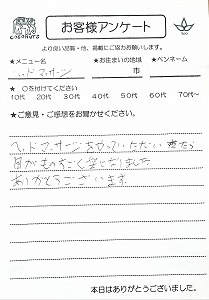 COCONUTS
お客様アンケート
より良い品質・他、掲載にご協力お願いします。
★メニュー名
★お住まいの地域
★ペンネーム
ヘッドマッサージ
市
★ ○を付けてください
10代 20代 30代 40代 50代 60代 70代~
★ご意見・ご感想をお聞かせください。
ヘッドマッサージをやっていただいて
目がものすごく楽になりました
ありがとうございます
本日はありがとうございました。